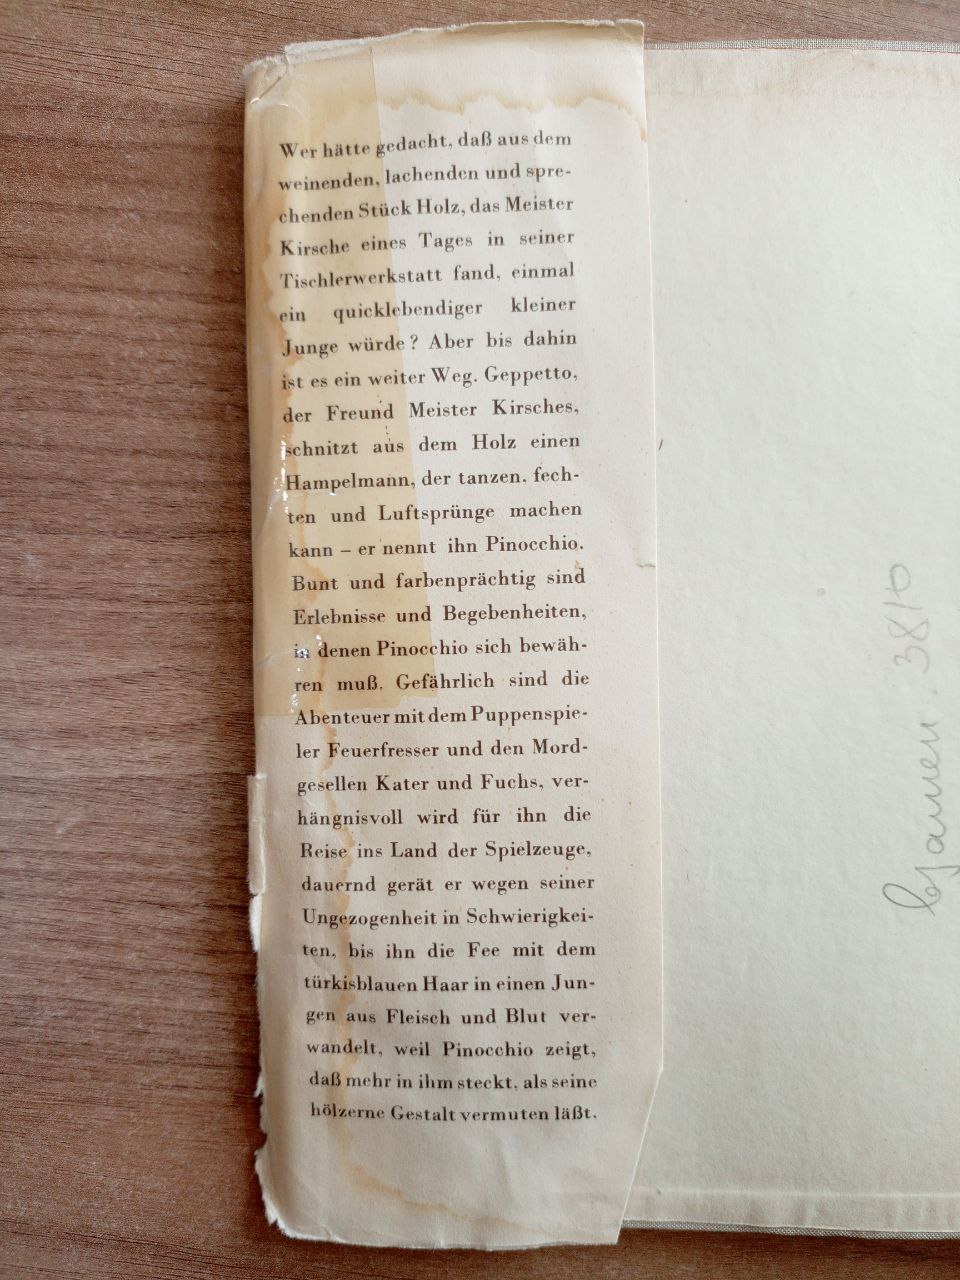 Wer hätte gedacht, daß aus dem
weinenden, lachenden und spre-
chenden Stück Holz, das Meister
Kirsche eines Tages in seiner
Tischlerwerkstatt fand, einmal
ein quicklebendiger kleiner
Junge würde? Aber bis dahin
ist es ein weiter Weg. Geppetto,
der Freund Meister Kirsches,
schnitzt aus dem Holz einen
Hampelmann, der tanzen. fech-
ten und Luftsprünge machen
kann – er nennt ihn Pinocchio.
Bunt und farbenprächtig sind
Erlebnisse und Begebenheiten,
in denen Pinocchio sich bewäh-
ren muß. Gefährlich sind die
Abenteuer mit dem Puppenspie-
ler Feuerfresser und den Mord-
gesellen Kater und Fuchs, ver-
hängnisvoll wird für ihn die
Reise ins Land der Spielzeuge,
dauernd gerät er wegen seiner
Ungezogenheit in Schwierigkei-
ten, bis ihn die Fee mit dem
türkisblauen Haar in einen Jun-
gen aus Fleisch und Blut ver-
wandelt, weil Pinocchio zeigt,
daß mehr in ihm steckt, als seine
hölzerne Gestalt vermuten läßt.